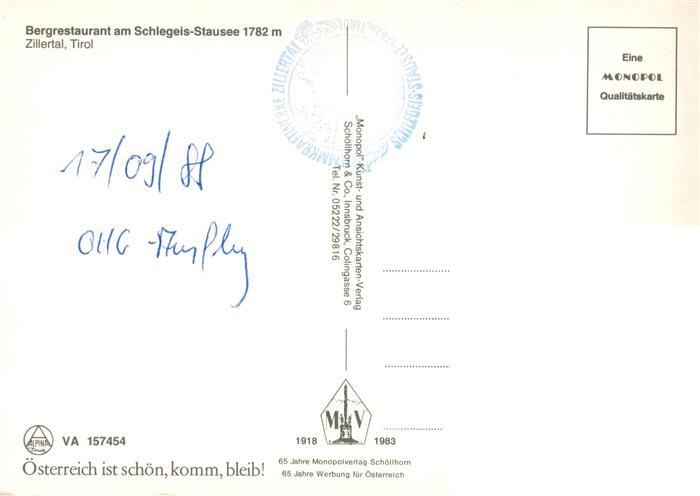 Bergrestaurant am Schlegeis-Stausee 1782 m
Zillertal, Tirol
17/09/88
Eine
MONOPOL
Qualitätskarte
„Monopol"-Kunst- und Ansichtskarten-Verlag
Schöllhorn & Co., Innsbruck, Colingasse 6
Tel. Nr. 05222/29816
ALPINA
Druck
VA 157454
Österreich ist schön, komm, bleib!
M V
1918 1983
65 Jahre Monopolverlag Schöllhorn
65 Jahre Werbung für Österreich